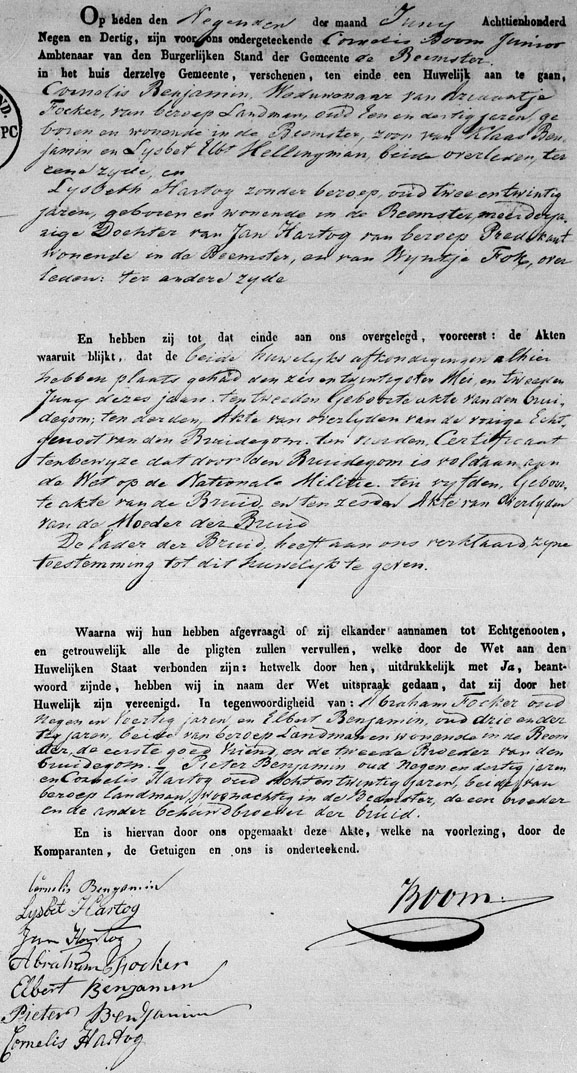 Op heden den Negenden der maand Juny Achttienhonderd
Negen en Dertig, zijn voor ons ondergeteekende Cornelis Boom Junior
Ambtenaar van den Burgerlijken Stand der Gemeente de Beemster
in het huis derzelve Gemeente, verschenen, ten einde een Huwelijk aan te gaan,
Cornelis Benjamin, Weduwenaar van Ariaantje
Focker, van beroep Landman, oud Een en dertig jaren, ge
boren en wonende in de Beemster, zoon van Klaas Ben-
jamin en Lysbet Elbt Hellingman, beide overleden, ter
eene zyde, en
Lysbeth Hartog zonder beroep, oud twee en twintig
jaren, geboren en wonende in de Beemster, meerderja-
rige Dochter van Jan Hartog van beroep Predikant
wonende in de Beemster, en van Wyntje Fok, over
leden: ter andere zyde
En hebben zij tot dat einde aan ons overgelegd, vooreerst: de Akten
waaruit blijkt, dat de beide huwelyks afkondigingen alhier
hebben plaats gehad den zes en twintigsten Mei, en tweeden
Juny dezes jaars: ten tweeden Geboorte akte van den brui-
degom; ten derden, Akte van overlyden van de vorige Echt-
genoot van den Bruidegom. ten vierden, Certificaat
ten bewyze dat door den Bruidegom is voldaan, aan
de Wet op de Nationale Militie. ten vyfden, Geboor-
te akte van de Bruid, en ten zesden Akte van Overlyden
van de Moeder der Bruid
De Vader der Bruid, heeft aan ons verklaard, zyne
toestemming tot dit huwelyk te geven.
Waarna wij hun hebben afgevraagd of zij elkander aannamen tot Echtgenooten,
en getrouwelijk alle de pligten zullen vervullen, welke door de Wet aan den
Huwelijken Staat verbonden zijn: hetwelk door hen, uitdrukkelijk met Ja, beant-
woord zijnde, hebben wij in naam der Wet uitspraak gedaan, dat zij door het
Huwelijk zijn vereenigd. In tegenwoordigheid van: Abraham Focker oud
Negen en veertig jaren en Elbert Benjamin, oud drie en der
tig jaren, beide van beroep Landman en wonende in de Beem
der, de eerste goed Vriend, en de tweede Broeder van den
bruidegom. Pieter Benjamin oud Negen en dertig jaren
en Cornelis Hartog oud Acht en twintig jaren, beide van
beroep landman, woonachtig in de Beemster, de een broeder
en de ander behuwdbroeder der bruid.
En is hiervan door ons opgemaakt deze Akte, welke na voorlezing, door de
Komparanten, de Getuigen en ons is onderteekend.
Cornelis Benjamin
Lysbet Hartog
Jan Hartog
Abraham Focker
Elbert Benjamen
Pieter Benjamin
Cornelis Hartog
Boom
ND.
PC